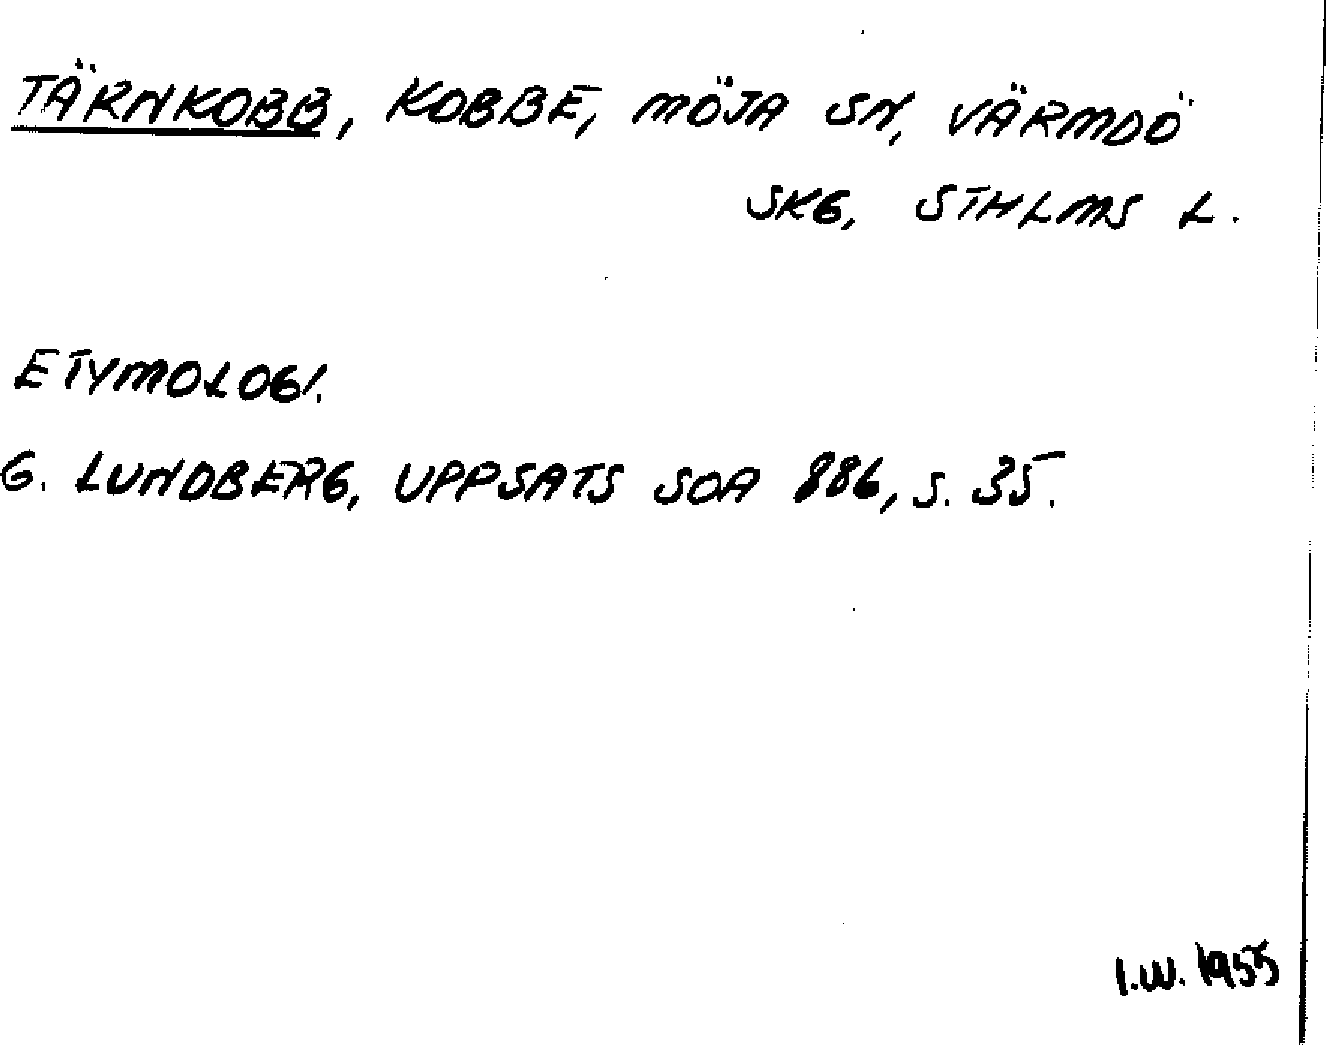 TÄRNKOBB, KOBBE, MÖJA SN, VÄRMDÖ
SKG, STHLMS L.
ETYMOLOGI.
G. LUNDBERG, UPPSATS SOA 886, S. 35.
I.W. 1955